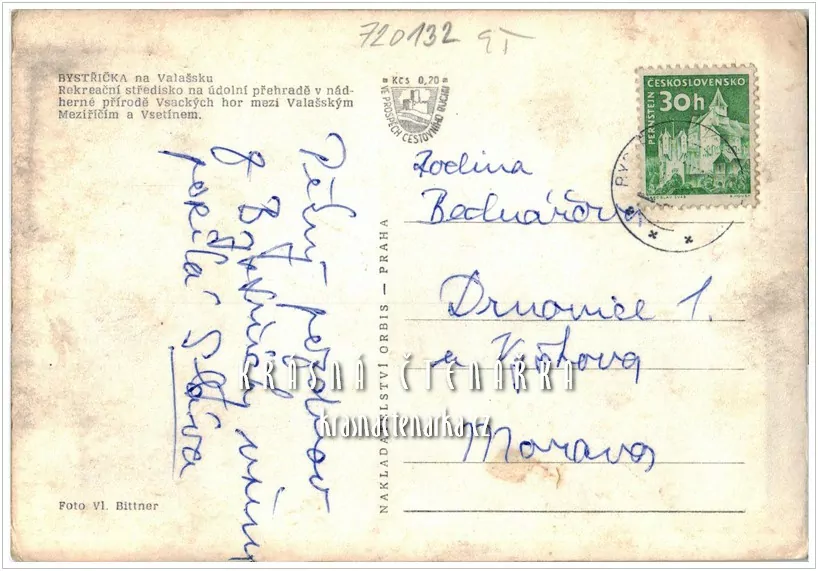 720132 9T
BYSTŘIČKA na Valašsku
Rekreační středisko na údolní přehradě v nád-
herné přírodě Vsackých hor mezi Valašským
Meziříčím a Vsetínem.
Kčs 0,20
VE PROSPĚCH CESTOVNÍHO RUCHU
ČESKOSLOVENSKO
PERNŠTEJN
30h
Pěkný pozdrav
z Bystřičky
posílá Sláva
Rodina
Bednářova
Drnovice 1.
u Vyškova
Morava
NAKLADATELSTVÍ ORBIS — PRAHA
KRÁSNÁ ČTENÁŘKA
Foto Vl. Bittner